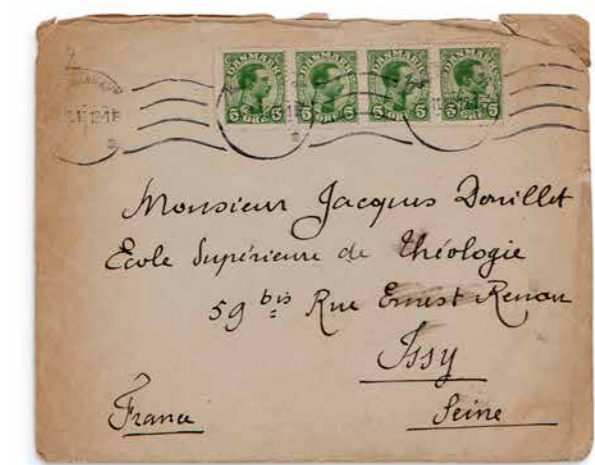 DANMARK DANMARK DANMARK DANMARK
5 ØRE 5 5 ØRE 5 5 ØRE 5 5 ØRE 5
Monsieur Jacques Douillet
Ecole Supérieure de Théologie
59 bis Rue Ernest Renan
Issy
France Seine